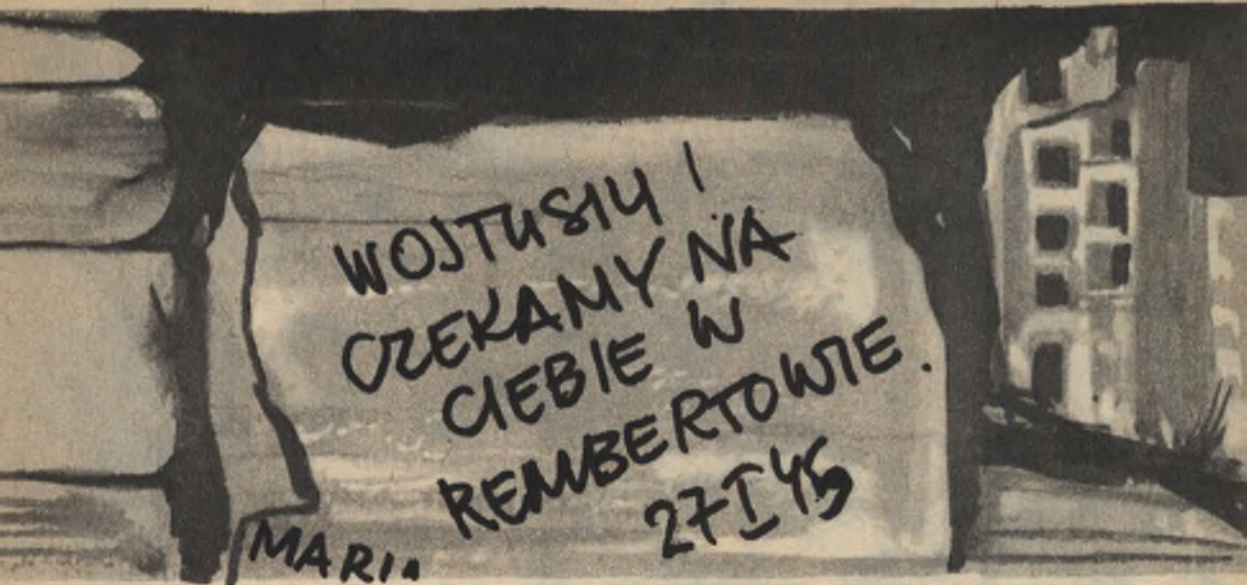 WOJTUSIU!
CZEKAMY NA
CIEBIE W
REMBERTOWIE.
27 I 45